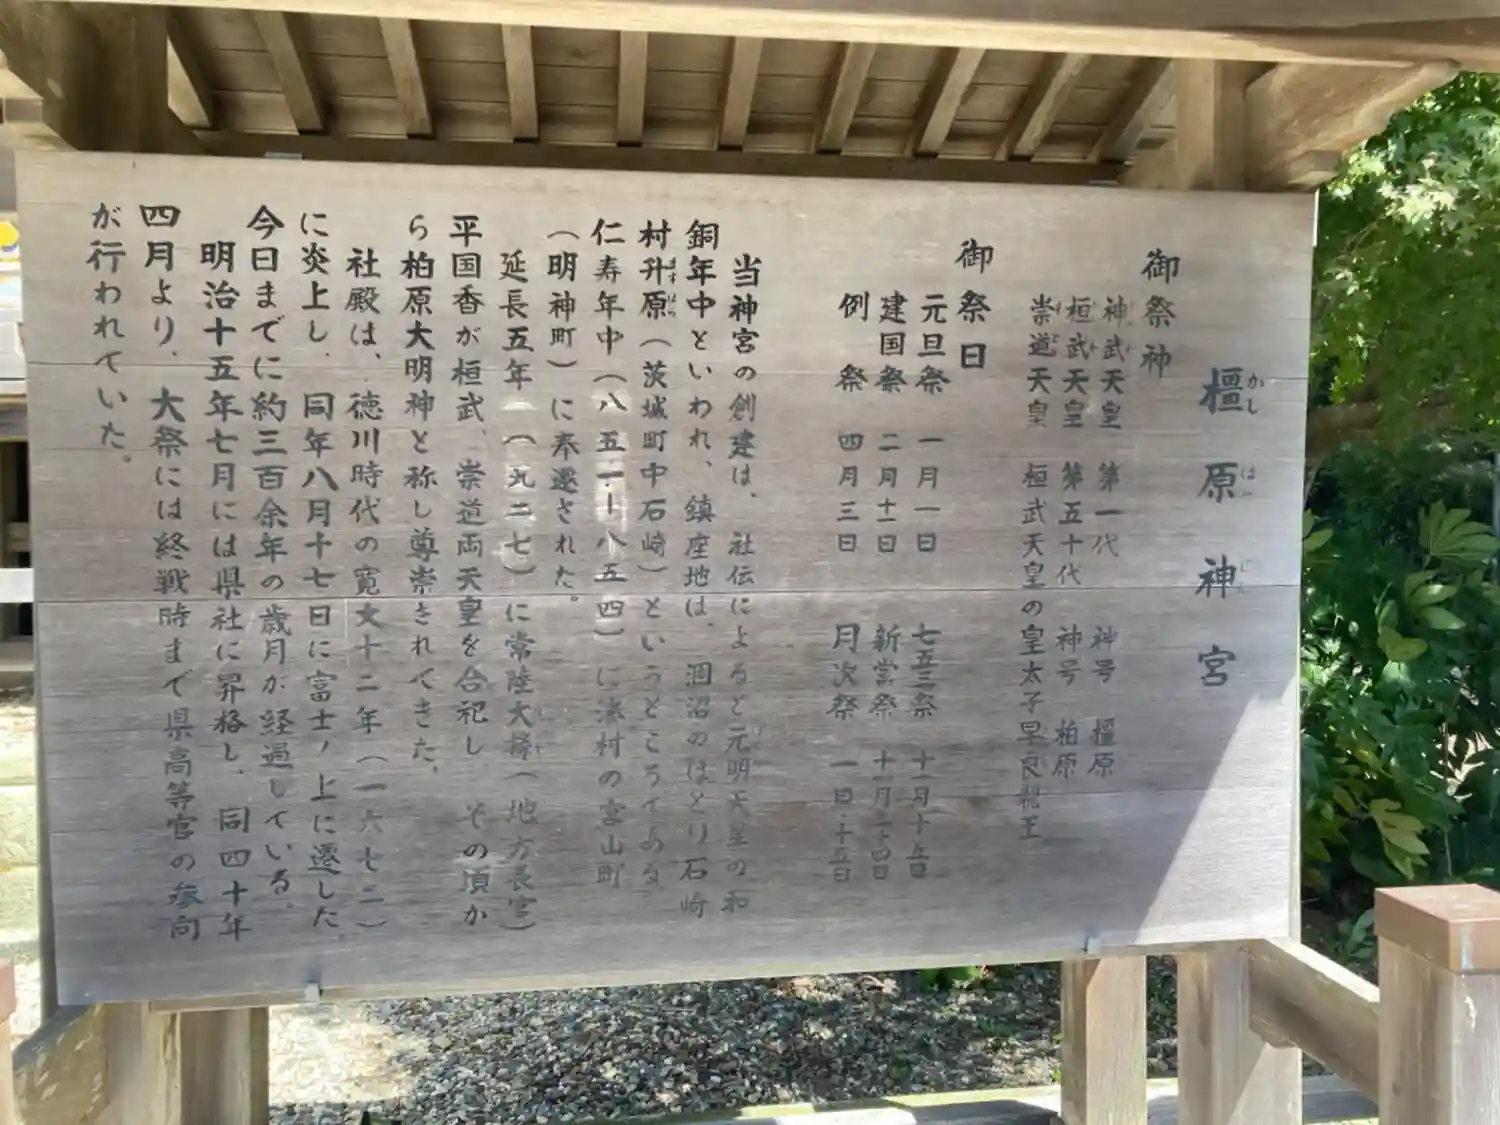 橿原神宮
かしはらじんぐう
御祭神
神武天皇 第一代 神号 橿原
桓武天皇 第五十代 神号 柏原
崇道天皇 桓武天皇の皇太子早良親王
御祭日
元旦祭 一月一日 七五三祭 十一月十五日
建国祭 二月十一日 新嘗祭 十一月二十四日
例祭 四月三日 月次祭 一日・十五日
当神宮の創建は、社伝によると元明天皇の和
銅年中といわれ、鎮座地は、涸沼のほとり石崎
村升原（茨城町中石崎）というところである。
仁寿年中（八五一ー八五四）に湊村の宮山町
（明神町）に奉遷された。
延長五年（九二七）に常陸大掾（地方長官）
平国香が桓武、崇道両天皇を合祀し、その頃か
ら柏原大明神と称し尊崇されてきた。
社殿は、徳川時代の寛文十二年（一六七二）
に炎上し、同年八月十七日に富士ノ上に遷した
今日までに約三百余年の歳月が経過している。
明治十五年七月には県社に昇格し、同四十年
四月より、大祭には終戦時まで県高等官の参向
が行われていた。